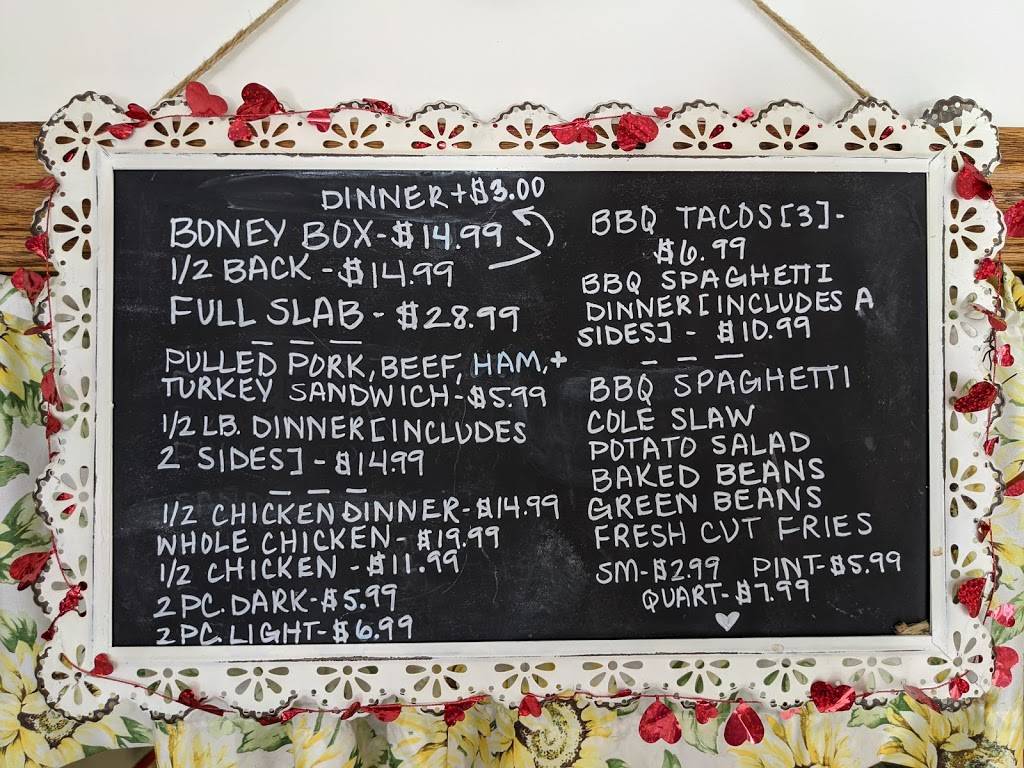 DINNER + $3.00
BONEY BOX - $14.99
1/2 BACK - $14.99
FULL SLAB - $28.99
PULLED PORK, BEEF, HAM, +
TURKEY SANDWICH - $5.99
1/2 LB. DINNER [INCLUDES
2 SIDES] - $14.99
1/2 CHICKEN DINNER - $14.99
WHOLE CHICKEN - $19.99
1/2 CHICKEN - $11.99
2 PC. DARK - $5.99
2 PC. LIGHT - $6.99
BBQ TACOS [3] -
$6.99
BBQ SPAGHETTI
DINNER [INCLUDES A
SIDES] - $10.99
BBQ SPAGHETTI
COLE SLAW
POTATO SALAD
BAKED BEANS
GREEN BEANS
FRESH CUT FRIES
SM - $2.99 PINT - $5.99
QUART - $7.99